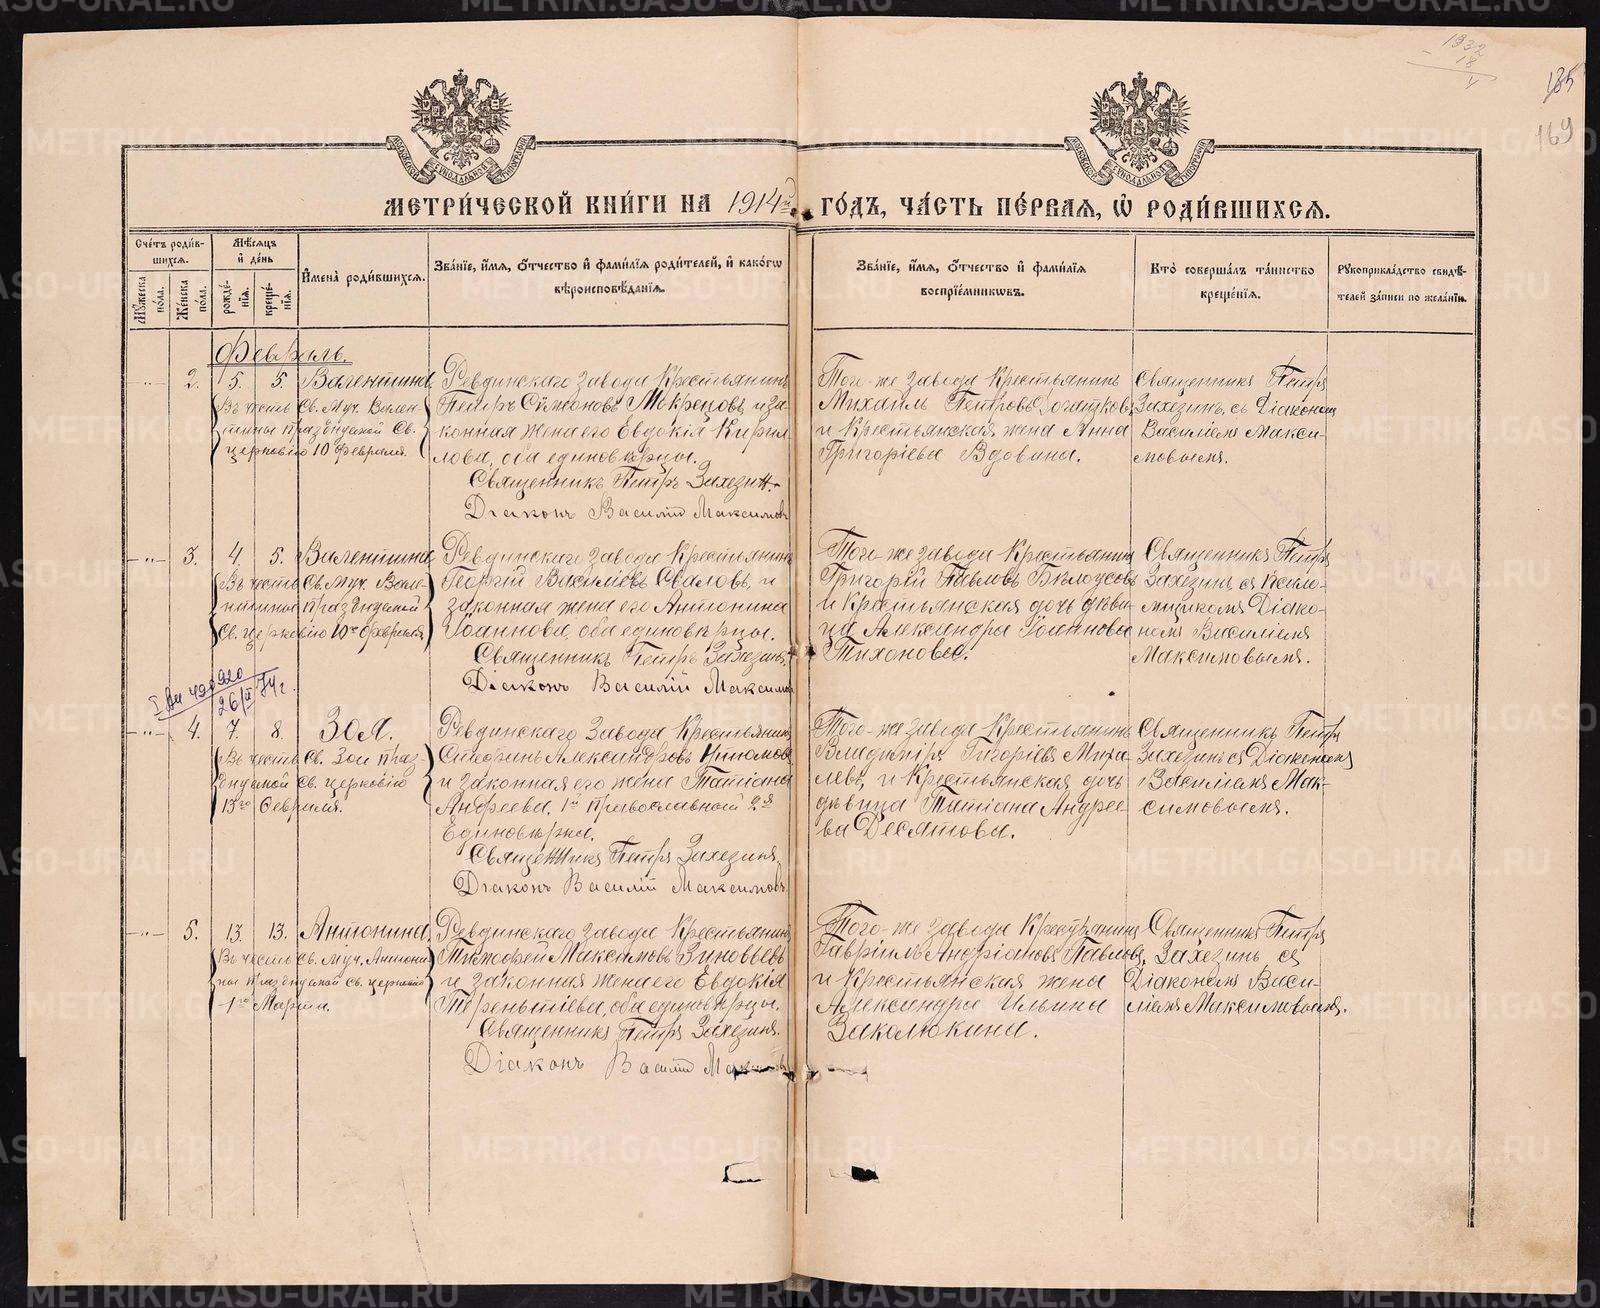 1932
18
4
185
169
МЕТРИ́ЧЕСКОЙ КНИ́ГИ НА 1914й ГО́ДЪ, ЧА́СТЬ ПЕ́РВАЯ, Ѽ РОДИ́ВШИХСЯ.
Сче́тъ роди́в-
шихся.
Мѣ́сяцъ
и҆ де́нь
Мꙋ́жеска по́ла.
Же́нска по́ла.
рожде́-
нїя.
креще́-
нїя.
И҆мена̀ роди́вшихся.
Зва́нїе, и҆́мя, ѻ҆́тчество и҆ фами́лїя роди́телей, и҆ како́гѡ
вѣроисповѣ́данїя.
Зва́нїе, и҆́мя, ѻ҆́тчество и҆ фами́лїя
воспрїе́мникѡвъ.
Кто̀ соверша́лъ та́инство
креще́нїя.
Рꙋкоприкла́дство свидѣ́-
телей за́писи по жела́нїю.
Февраль.
2.
5.
5.
Валентина
Въ честь Св. Муч. Вален-
тины празднуемой Св.
церковію 10 февраля.
Ревдинскаго завода Крестьянинъ
Петръ Сѵмоновъ Мокрецовъ и за-
конная жена его Евдокія Кирил-
лова, оба единовѣрцы.
Священникъ Петръ Захезинъ.
Діаконъ Василій Максимовъ
Того-же завода Крестьянинъ
Михаилъ Петровъ
и Крестьянская жена Анна
Григоріева Вдовина.
Священникъ Петръ
Захезинъ съ Діакономъ
Василіемъ Макси-
мовымъ.
3.
4.
5.
Валентина
Въ честь Св. Муч. Вале-
нтины празднуемой
Св. церковію 10го февраля
Ревдинскаго завода Крестьянинъ
Георгій Василіевъ Сваловъ, и
законная жена его Антонина
Іоаннова, оба единовѣрцы.
Священникъ Петръ Захезинъ.
Діаконъ Василій Максимовъ
Того же завода Крестьянинъ
Григорій Павловъ Бѣлоусовъ
и Крестьянская дочь дѣви-
ца Александра Іоаннова
Тихонова.
Священникъ Петръ
Захезинъ съ Псало-
мщикомъ Діако-
номъ Василіемъ
Максимовымъ.
26/II 74 г.
4.
7.
8.
Зоя.
Въ честь Св. Зои праз-
днуемой Св. церковію
13го Февраля.
Ревдинскаго Завода Крестьянинъ
Александровъ
и законная его жена Татіана
Андреева, 1й православный 2я
Единовѣрка.
Священникъ Петръ Захезинъ.
Діаконъ Василій Максимовъ
Того-же завода Крестьянинъ
Владиміръ Григоріевъ Миха-
левъ, и Крестьянская дочь
дѣвица Татіана Андрее-
ва Десятова.
Священникъ Петръ
Захезинъ съ Діакономъ
Василіемъ Мак-
симовымъ.
5.
13.
13.
Антонина.
Въ честь св. муч. Антони-
ны празднуемой св. церковію
1го Марта.
Ревдинскаго завода Крестьянинъ
Тимофей Максимовъ Зиновьевъ
и законная жена его Евдокія
Терентіева, оба единовѣрцы.
Священникъ Петръ Захезинъ.
Діаконъ Василій Максимовъ
Того-же завода Крестьянинъ
Гавріилъ Андріановъ Павловъ,
и Крестьянская жена
Александра Ильина
Заколюкина.
Священникъ Петръ
Захезинъ съ
Діакономъ Васи-
ліемъ Максимовымъ.
METRIKI.GASO-URAL.RU